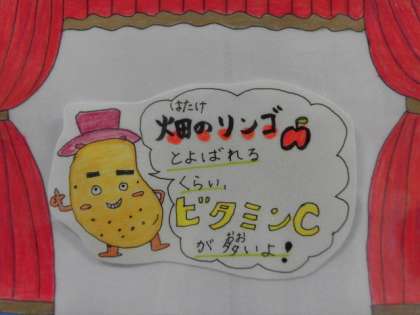 はたけ
畑のリンゴ
とよばれる
くらい、
ビタミンC
おお
が多いよ!